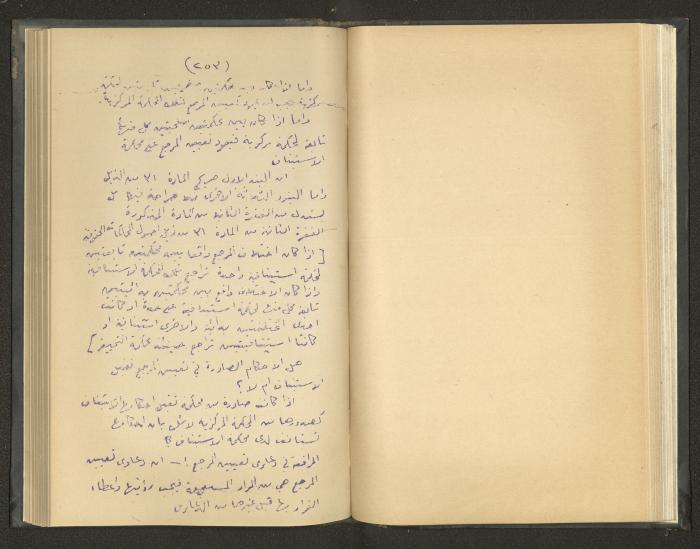 (٢٥٣)
واما اذا كان بين محكمتين
مركزية يعود تعيين المرجع لتلك المحكمة المركزية
واما اذا كان بين محكمتين كل منها
تابعة لمحكمة مركزية فيعود تعيين المرجع على محكمة
الاستئناف
ان البند الاول صريح المادة ٣١ من الذيل
واما البنود الثلاثة الاخرى صراحة فيها بل
يستدل من الفقرة الثانية من المادة المذكورة
الفقرة الثانية من المادة ٣١ من ذيل اصول المحاكمات الحقوقية
[ اذا كان اختلاف المرجع واقعا بين محكمتين تابعتين
لمحكمة استئنافية واحدة تراجع تلك المحكمة الاستئنافية
واذا كان الاختلاف وقع بين محكمتين بدائيتين
تابعة كل منها لمحكمة استئنافية على حدة او كانت
احدى المحكمتين بدائية والاخرى استئنافية او
كانتا استئنافيتين تراجع محكمة التمييز ]
هل الاحكام الصادرة في تعيين المرجع تقبل
الاستئناف ام لا ؟
اذا كانت صادرة من محكمة تقبل احكامها الاستئناف
كصدورها من المحكمة المركزية لا شك بان احكامها
تستأنف لدى محكمة الاستئناف
المرافعة في دعاوى تعيين المرجع : - ان دعاوى تعيين
المرجع هي من المواد المستعجلة فيجب رؤيتها واعطاء
القرار بها قبل غيرها من الدعاوى